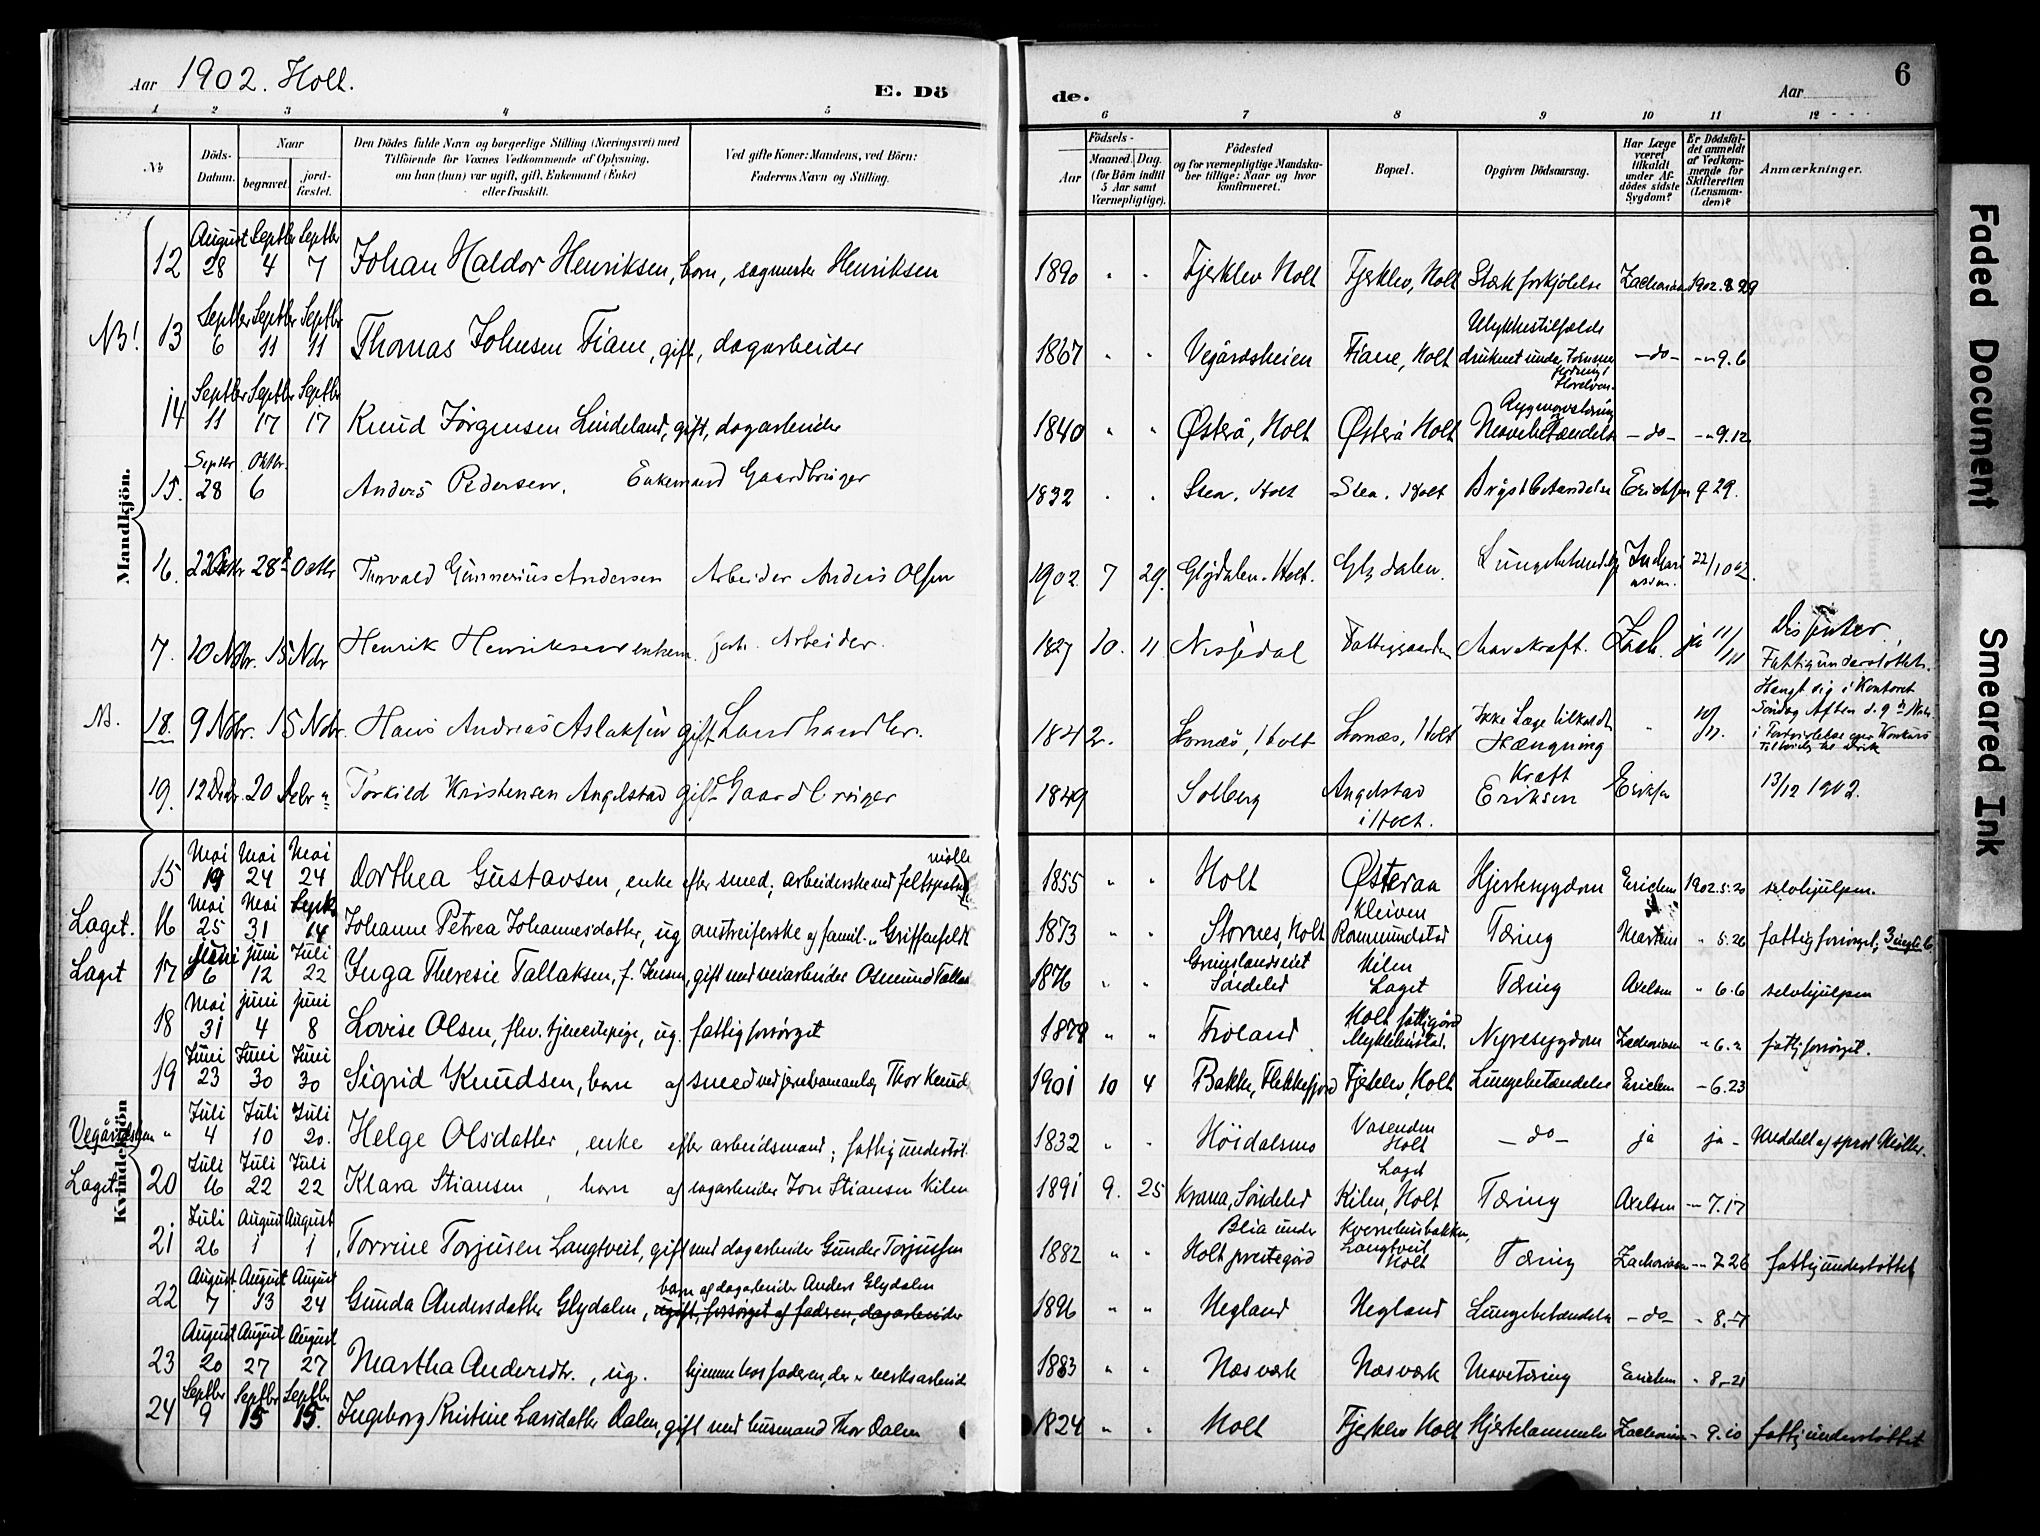 Aar 1902. Holt.
E. Dö
de.
Aar
6
1 2 3 4 5 6 7 8 9 10 11 12
No
Döds-Datum.
Naar
begravet.
jord-fæstet.
Den Dödes fulde Navn og borgerlige Stilling (Næringsvei) med
Tilföiende for Voxnes Vedkommende af Oplysning,
om han (hun) var ugift, gift, Enkemand (Enke)
eller fraskilt.
Ved gifte Koner: Mandens, ved Börn:
Faderens Navn og Stilling.
Födsels-
Aar
Maaned. Dag.
(for Börn indtil
5 Aar samt
Værnepligtige).
Födested
og for værnepligtige Mandska-
ber tillige: Naar og hvor
konfirmeret.
Bopæl.
Opgiven Dödsaarsag.
Har Læge
været
tilkaldt
under Af-
dödes sidste
Sygdom?
Er Dödsfal-
det anmeldt
af Vedkom-
mende for
Skifteretten
(Lensman-
den)?
Anmærkninger.
Mandkjön.
12 August 28 Septbr 4 Septbr 7 Johan Haldor Henriksen, barn, sagmester Henriksen 1890 " " Fjerklev Holt Fjerklev, Holt Stærk forkjölelse Zachariasen 1902.8.29
NB! 13 Septbr 6 Septbr 11 Septbr 11 Thomas Johnsen Fiane, gift, dagarbeider 1867 " " Vegårdsheien Fiane, Holt Ulykkestilfælde druknet under -do- -"- 9.6
14 Septbr 11 Septbr 17 Septbr 17 Knud Jörgensen Lindeland, gift, dagarbeider 1840 " " Østerå, Holt Østerå Holt -do- -"- 9.12
15. Septbr 28 Oktbr. 6 Anders Pedersen. Enkemand Gaardbruger 1832 " " Stea, Holt Stea, Holt Brystbetændelse Erichsen 9 29.
16. 22 Oktbr 28 Octbr Thorvald Gunnerius Andersen Arbeider Anders Olsen 1902 7 29. Glydalen. Holt. Glydalen. Lungebetændelse 22/10 02.
7. 10 Nvbr. 15 Nvbr Henrik Henriksen enkem. forh. Arbeider. 1827 10. 11 Nissedal Fattiggaarden Mavekræft. Zach. ja 11/11 Dissenter, Fattigunderstöttet.
NB. 18. 9 Nvbr. 15 Nvbr. Hans Andreas Aslaksen gift Landhandler. 1842. Lomæs, Holt Lomæs, Holt Ikke Læge tilkaldt Hængning " 10/11. Hængt sig i Kontoret Söndag Aften d. 9de Nvbr. i Fortvivlelse over Konkurs
19. 12 Decbr. 20 Decbr " Torkild Kristensen Angelstad gift Gaardbruger 1849 Solberg Angelstad i Holt. Kræft Eriksen Eriksen 13/12 1902.
Kvindekjön
15 Mai 19 Mai 24 Mai 24 Dorthea Gustavsen, enke efter smed; arbeiderske ved feltspatmölle 1855 " " Holt Østeraa Hjertesygdom Erichsen 1902.5.20 selvhjulpen.
Laget. 16 Mai 25 Mai 31 Septb. 14 Johanne Petrea Johannesdatter, ug austreiferske af famil. "Griffenfeldt 1873 " " Stornes, Holt Kleiven Rommundstad Tæring Martens " 5.26 fattigforsörget,
Laget 17 juni 6 juni 12 Juli 22 Inga Theresie Tallaksen, f. Jensen, gift med veiarbeider Osmund Tallaks 1876 " " Grimlandseiet Söndeled Kilen Laget Tæring Axelsen " 6.6 selvhjulpen
18 Mai 31 juni 4 juni 8 Lovise Olsen, flov. tjenestepige, ug. fattigforsörget 1879 " " Froland Holt fattiggård Myklebustad. Nyresygdom Zachariasen - 6.2 fattigforsörget.
19 Juni 23 Juni 30 Juni 30 Sigrid Knudsen, barn af smed ved jernbaneanlæg Thor Knud 1901 10 4 Bakke, Flekkefjord Fjerklev, Holt Lungebetændelse Erichsen - 6.23
Vegårdsheien " Juli 4 Juli 10 Juli 20. Helge Olsdatter, enke efter arbeidsmand; fattigunderstöt. 1832 " " Höidalsmo Vaasenden Holt - do - ja ja - Meddelt af sprst Möller.
Laget 20 Juli 16 Juli 22 Juli 22 Klara Stiansen, barn af dagarbeider Jon Stiansen Kilen 1891 9. 25 Krana, Söndeled Laget Kilen, Holt Tæring Axelsen -"- 7.17
21 Juli 26 August 1 August 1 Torrine Torjusen Langtveit, gift med dagarbeider Gunder Torjussen 1882 " " Blia under Holt prestegård Kvernhusbakken, Langtveit Holt Tæring Zachariasen -"- 7.26 fattigunderstöttet
22 August 7 August 13 August 24 Gunda Andersdatter Glydalen, barn af dagarbeider Anders Glydalen ugift, forsörget af fadren, dagarbeider 1896 " " Uegland Uegland Lungebetændelse -do- " 8.-7
23 August 20 August 27 August 27 Martha Andersdtr., ug. hjemme hos faderen, der er verksarbeider 1883 " " Næsværk Næsværk Mavetæring Erichsen " 8.-21
24 Septbr 9 Septbr 15 Septbr 15. Ingeborg Kristine Larsdatter Dalen, gift med husmand Thor Dalen 1824 " " Holt Fjerklev Holt Hjertelammelse Zachariasen - 9.10 fattigunderstöttet
Faded Document
Smeared Ink